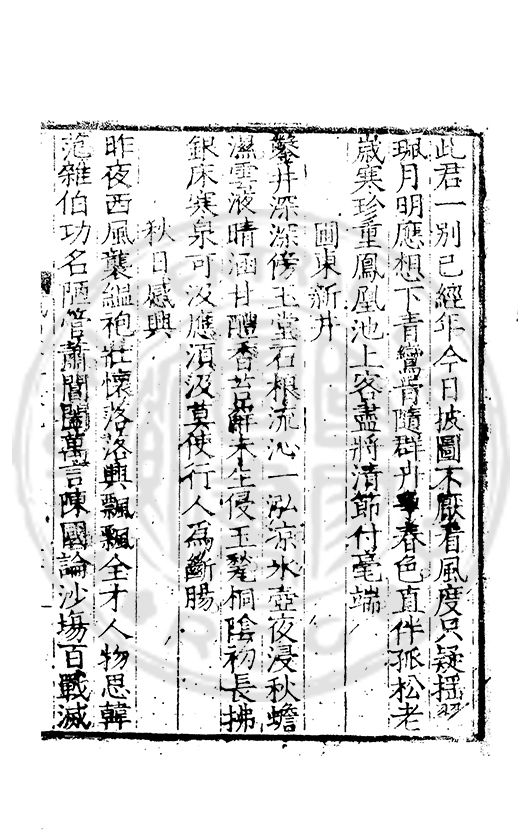 此君一別已經年今日披圖不厭看風度只疑搖翠
珮月明應想下青鸞肯隨群卉爭春色直伴孤松老
歲寒珍重鳳凰池上客盡將清節付毫端
圃東新井
鑿井深深傍玉堂石根流沁一泓凉水壺夜浸秋蟾
濕雲液晴涵甘醴香苔蘚未生侵玉甃桐陰初長拂
銀床寒泉可汲應須汲莫使行人爲斷腸
秋日感興
昨夜西風襲縕袍壯懷落落興飄飄全才人物思韓
范雜伯功名陋管蕭閶闔萬言陳國論沙塲百戰滅